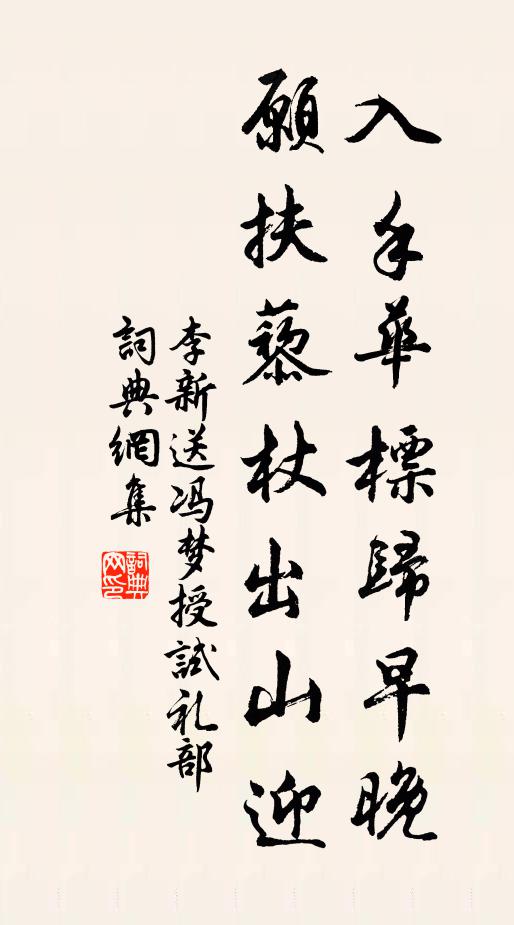 入手華標歸早晚
願扶藜杖出山迎
李新送冯梦授試礼部
詞典網集
詞典网印